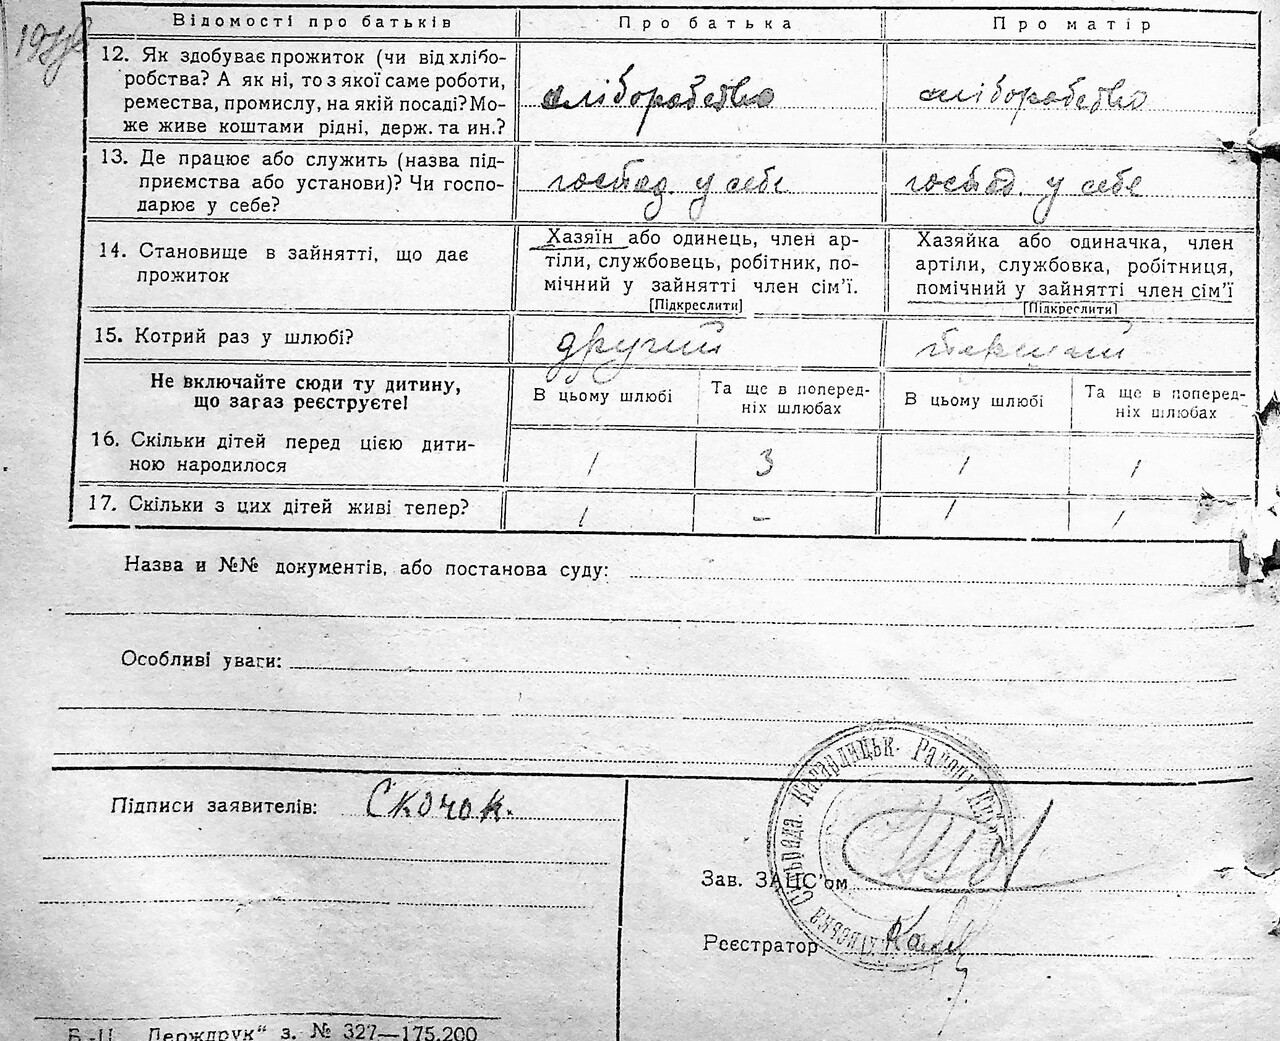 Відомості про батьків Про батька Про матір
12. Як здобуває прожиток (чи від хлібо-
робства? А як ні, то з якої саме роботи,
ремества, промислу, на якій посаді? Мо-
же живе коштами рідні, держ. та ин.?
хліборобство хліборобство
13. Де працює або служить (назва під-
приємства або установи)? Чи госпо-
дарює у себе?
господ. у себе господ. у себе
14. Становище в зайнятті, що дає
прожиток
Хазяїн або одинець, член ар-
тіли, службовець, робітник, по-
мічний у зайнятті член сім'ї.
[Підкреслити]
Хазяйка або одиначка, член
артіли, службовка, робітниця,
помічний у зайнятті член сім'ї
[Підкреслити]
15. Котрий раз у шлюбі? другий перший
Не включайте сюди ту дитину,
що зараз реєструєте!
В цьому шлюбі
Та ще в поперед-
ніх шлюбах
В цьому шлюбі
Та ще в поперед-
ніх шлюбах
16. Скільки дітей перед цією дити-
ною народилося
1 3 1 1
17. Скільки з цих дітей живі тепер? 1 – 1 1
Назва и №№ документів, або постанова суду:
Особливі уваги:
Підписи заявителів: Скочок.
Сільрада Кагардицьк. Району
Зав. ЗАЦС'ом
Реєстратор
Держдрук" з. № 327—175.200